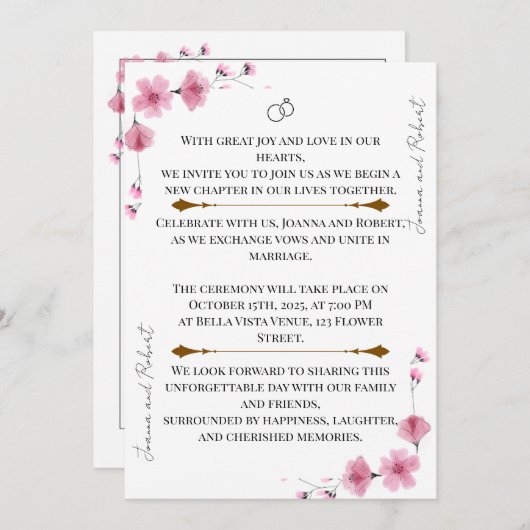 Joanna and Robert
With great joy and love in our
hearts,
we invite you to join us as we begin a
new chapter in our lives together.
Celebrate with us, Joanna and Robert,
as we exchange vows and unite in
marriage.
The ceremony will take place on
October 15th, 2025, at 7:00 PM
at Bella Vista Venue, 123 Flower
Street.
We look forward to sharing this
unforgettable day with our family
and friends,
surrounded by happiness, laughter,
and cherished memories.
Joanna and Robert